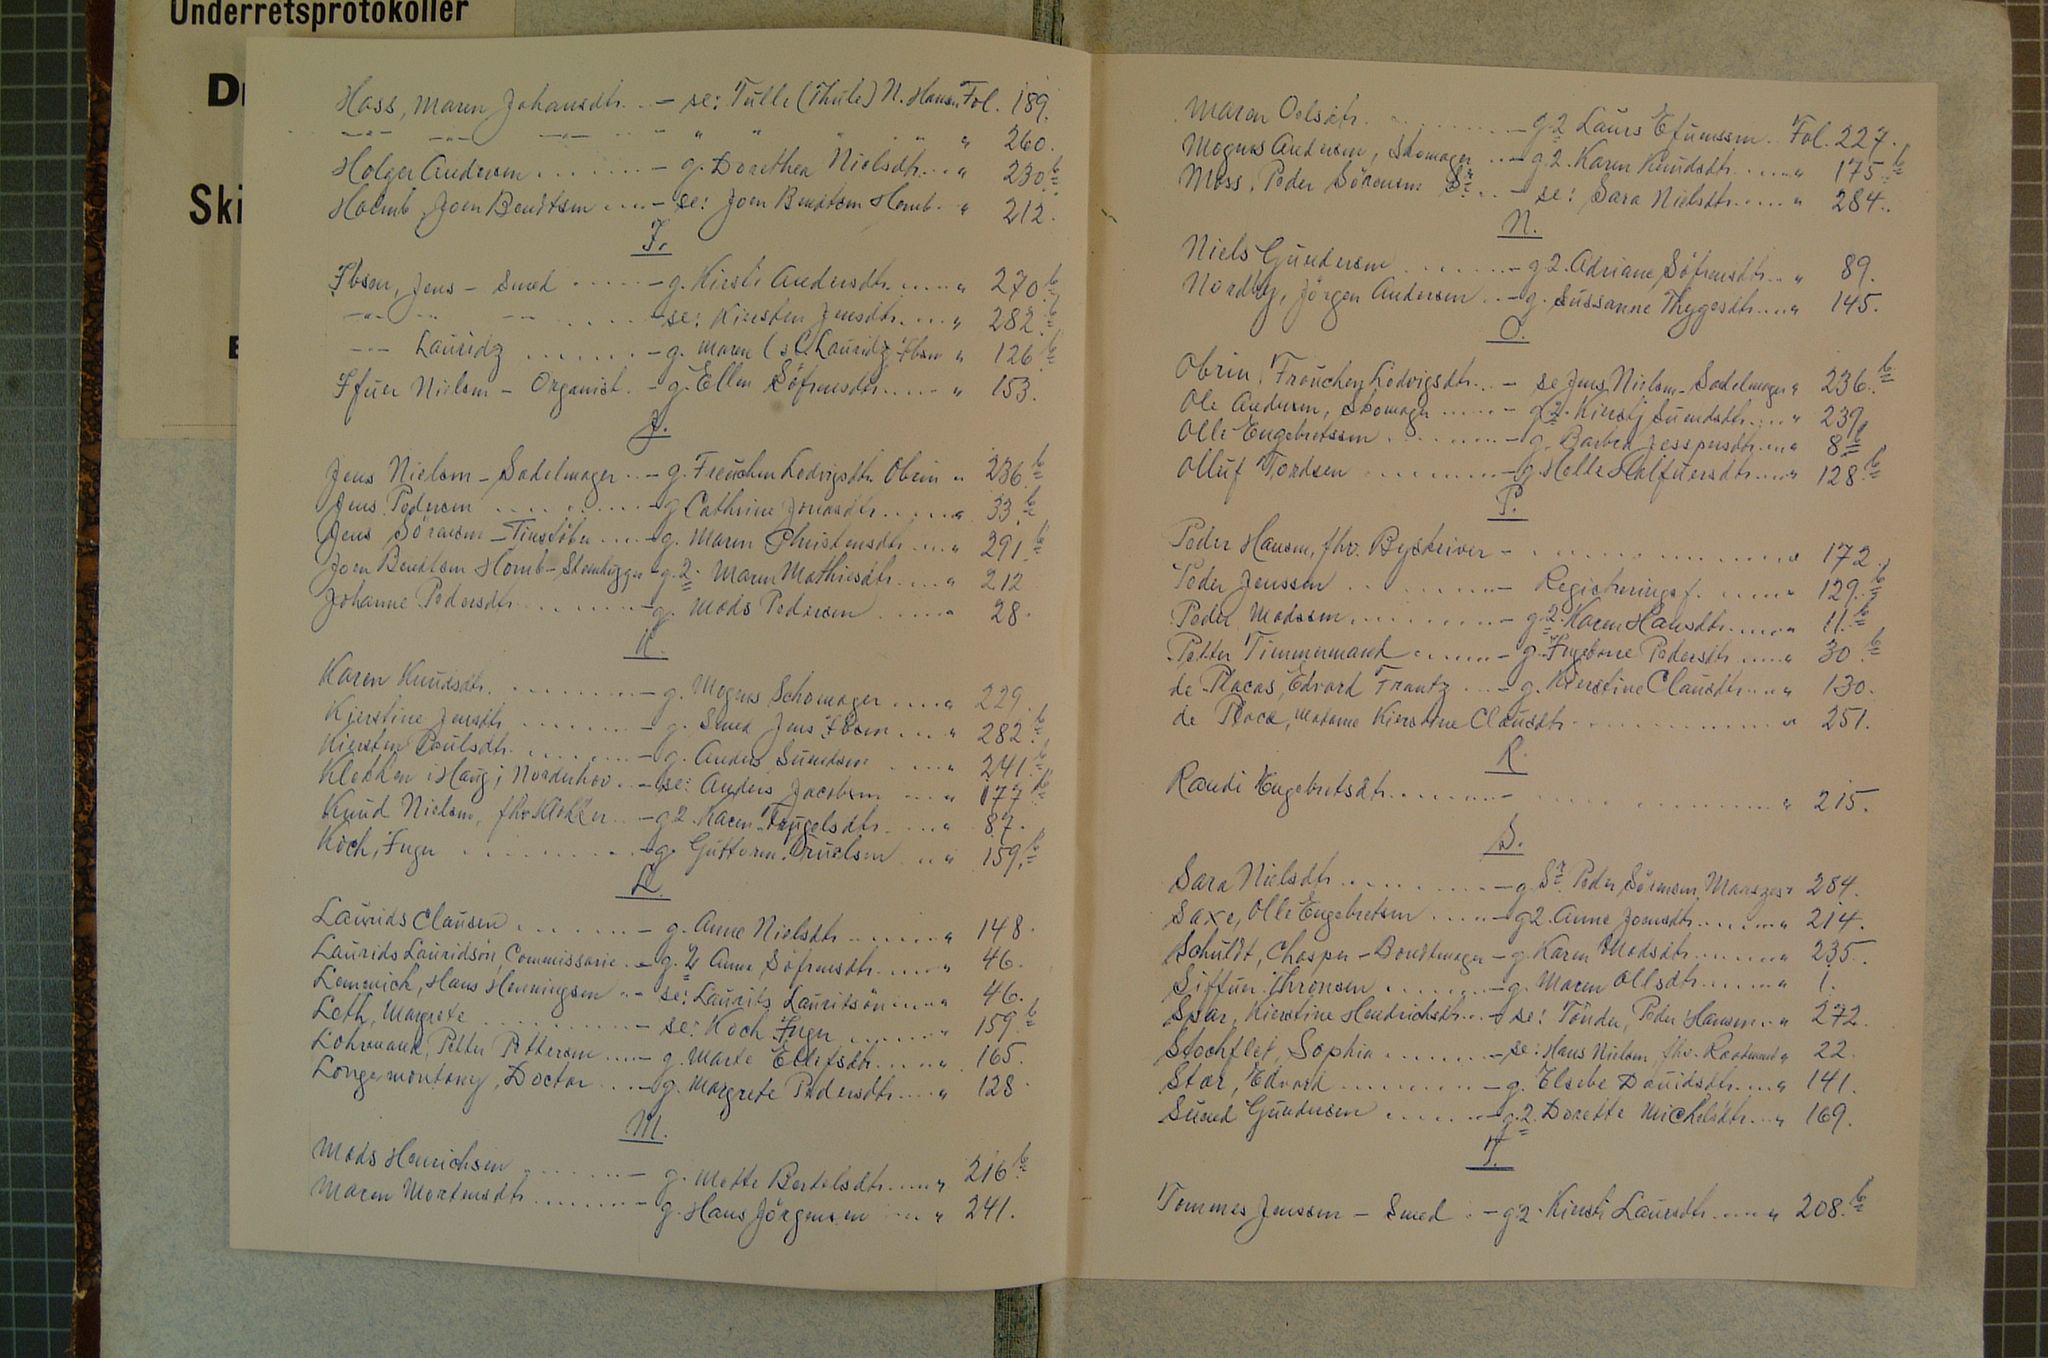 Underretsprotokoller
D
Ski
Hass, Maren Johansdtr. .. - se: Tulle (Thule) N. Hansen Fol. 189.
-"- -"- -"- " " " " " " " 260.
Holger Andersen . . . . . . . - g. Dorethea Nielsdtr. .. " 230 b
Holmb, Joen Bendtsen . . . . - se: Joen Bendtsen Homb. " 212.
I.
Ibsen, Jens - Smed . . . . . - g. Kirsti Andersdtr. . . . . " 270 b
-"- -"- -"- . . . . . - se: Kiersten Jensdtr. . . . " 282 b
-"- Lauridz . . . . . . . - g. Maren (sC. Lauridz Ibsen " 126 b
Ifuer Nielsen - Organist. - g. Ellen Söfrensdtr. . . . . " 153.
J.
Jens Nielsen - Sadelmager . . - g. Freuchen Ledvigsdtr. Obrin " 236 b
Jens Pedersen . . . . . . . - g Cathrine Jonasdtr. . . . . " 33. b
Jens Sörensen - Tinstöber . . . - g. Maren Christensdtr. . . . " 291 b
Joen Bendtsen Homb - Stenhugger - g. 2. Maren Mathiesdtr. . . . " 212
Johanne Pedersdtr. . . . . . . - g. Mads Pedersen . . . . " 28.
K.
Karen Knudsdtr. . . . . . . . - g. Mogens Schomager . . . . " 229.
Kjerstine Jensdtr. . . . . . . - g. Smed Jens Ibsen . . . " 282. b
Kiersten Poulsdtr. . . . . . . - g. Anders Suendsen . . . " 241. b
Klekken i Haug i Norderhov. . - se: Anders Jacobsen . . . " 177 b
Knud Nielsen, fhv. Klokker . . - g 2. Karen Trugelsdtr. . . . " 87.
Koch, Inger . . . . . . . . - g. Guttorm Truelsen . . . " 159. b
L.
Laurids Clausen . . . . . . - g. Anne Nielsdtr. . . . . . . " 148.
Laurids Lauridsön, Commissarie . - g. 2 Anne Söfrensdtr. . . . . " 46.
Lemmich, Hans Henningsen . . - se: Laurits Lauritsön . . . . " 46.
Leth, Margrete . . . . . . . . - se: Koch Inger . . . . . . " 159. b
Lohrmann, Petter Pettersen . . . - g. Marte Ellefsdtr. . . . . " 165.
Longemontany, Doctor . . . - g. Margrete Pedersdtr. . . . " 128
M.
Mads Henrichsen . . . . . . . - g. Mette Bertelsdtr. . . . . " 216 b
Maren Mortensdtr. . . . . . . . - g. Hans Jörgensen . . . " 241.
Maren Oelsdtr. . . . . . . . . . - g. 2 Laurs Efuenssen . . Fol. 227.
Mogens Andersen, Skomager . . - g 2. Karen Knudsdtr. . . . . " 175 b
Moss, Peder Sörensen Sr. . . - se: Sara Nielsdtr. . . . . " 284.
N.
Niels Gundersen . . . . . . . - g 2. Adriane Söfrensdtr. . . " 89.
Nordby, Jörgen Andersen . . - g. Sussanne Thygesdtr. . . " 145.
O.
Obrin, Freuchen Ledvigsdtr. . . - se Jens Nielsen - Sadelmager " 236. b
Ole Andersen, Skomager . . . . . - g 2. Kirstj Suendsdtr. . . " 239
Olle Engebretssen . . . . . . . . - g. Barbra Jesspersdtr. . . " 8 b
Olluf Tordsen . . . . . . . . . - g. Helle Halfuersdtr. . . . " 128 b
P.
Peder Hansen, fhv. Byskriver - . . . . . . . . . . . . " 172.
Peder Jenssen . . . . . . . . - Registreringsf. . . . . . " 129. b
Peder Madssen . . . . . . . . . - g. 2. Karen Hansdtr. . . . . " 11. b
Petter Timmermand . . . . . . - g. Ingeborre Pedersdtr. . . . . " 30 b
de Placas, Edvard Frantz . . . - g. Kierstine Clausdtr. . . . " 130.
de Place, Madame Kierstine Clausdtr. . . . . . . . . . . . " 251.
R.
Randi Engebretsdtr. . . . . . . . - . . . . . . . . . . . . " 215.
S.
Sara Nielsdtr. . . . . . . . . . . - g. Sr. Peder Sörensen Maaszes " 284.
Saxe, Olle Engebretsen . . . . . - g 2. Anne Joensdtr. . . . . " 214.
Schuldt, Chasper - Bundtmager - g. Karen Madsdtr. . . . . . . " 235.
Siffuer Thronsen . . . . . . . - g. Maren Ollsdtr. . . . . . " 1.
Spar, Kierstine Hendrichsdtr. . . - se: Tönder, Peder Hansen . . " 272.
Stochflet, Sophia . . . . . . . - se: Hans Nielsen, fhv. Raadmand " 22.
Stær, Edvard . . . . . . . . . . - g. Elsebe Dauidsdtr. . . " 141.
Suend Gundersen . . . . . . . - g. 2. Dorette Michelsdtr. . . " 169.
T.
Tommes Jenssen - Smed . . - g 2. Kiersti Laursdtr. . . . . " 208. b